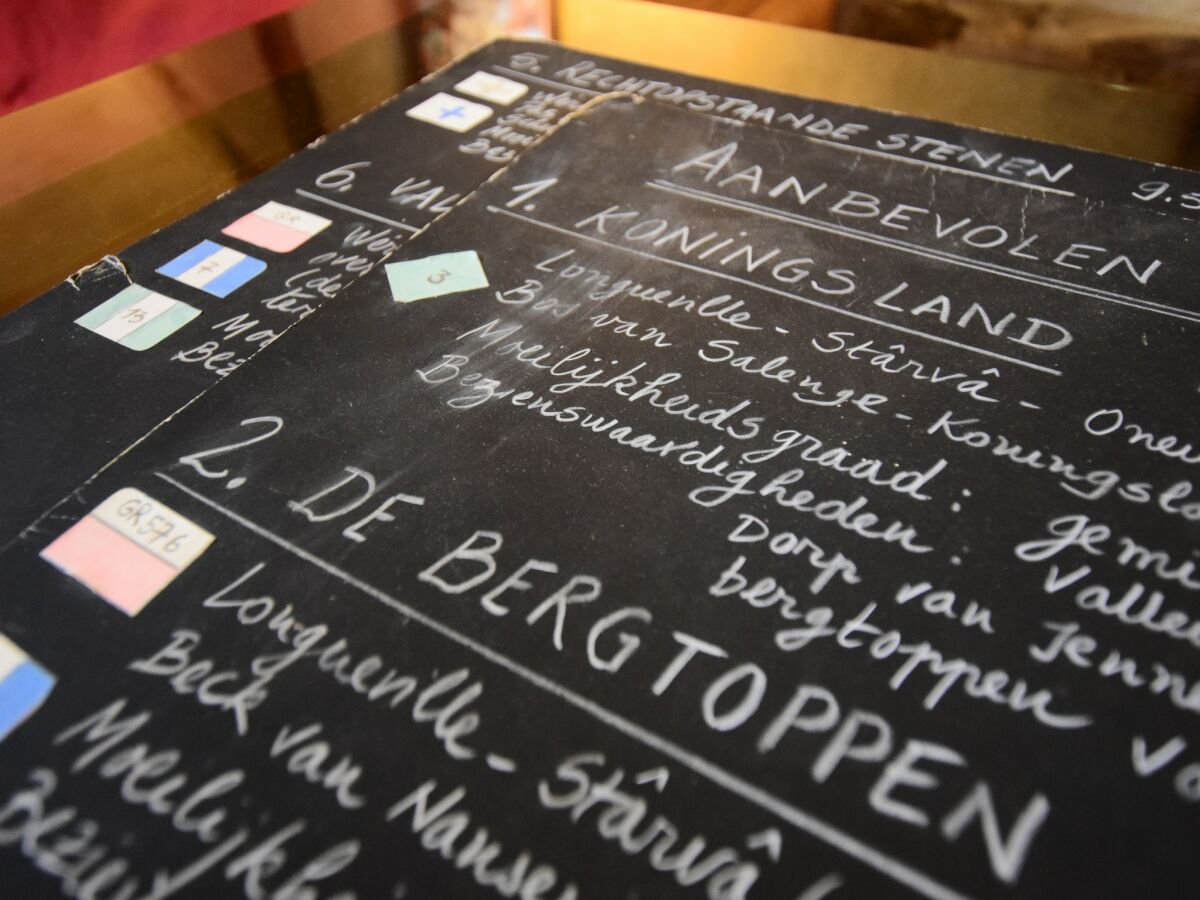 5. RECHTOPSTAANDE STENEN 9.5
6. VAL
GR
7
13
AANBEVOLEN
1. KONINGSLAND
3
Longueville - Stârvâ - Oneu
Bos van Salenge - Koningslo
Moeilijkheidsgraad: gemi
Bezienswaardigheden: Valle
Dorp van Jenn
bergtoppen vo
2. DE BERGTOPPEN
GR576
Longueville - Stârvâ
Beck van Nanse
Moeilijkh
Bezien